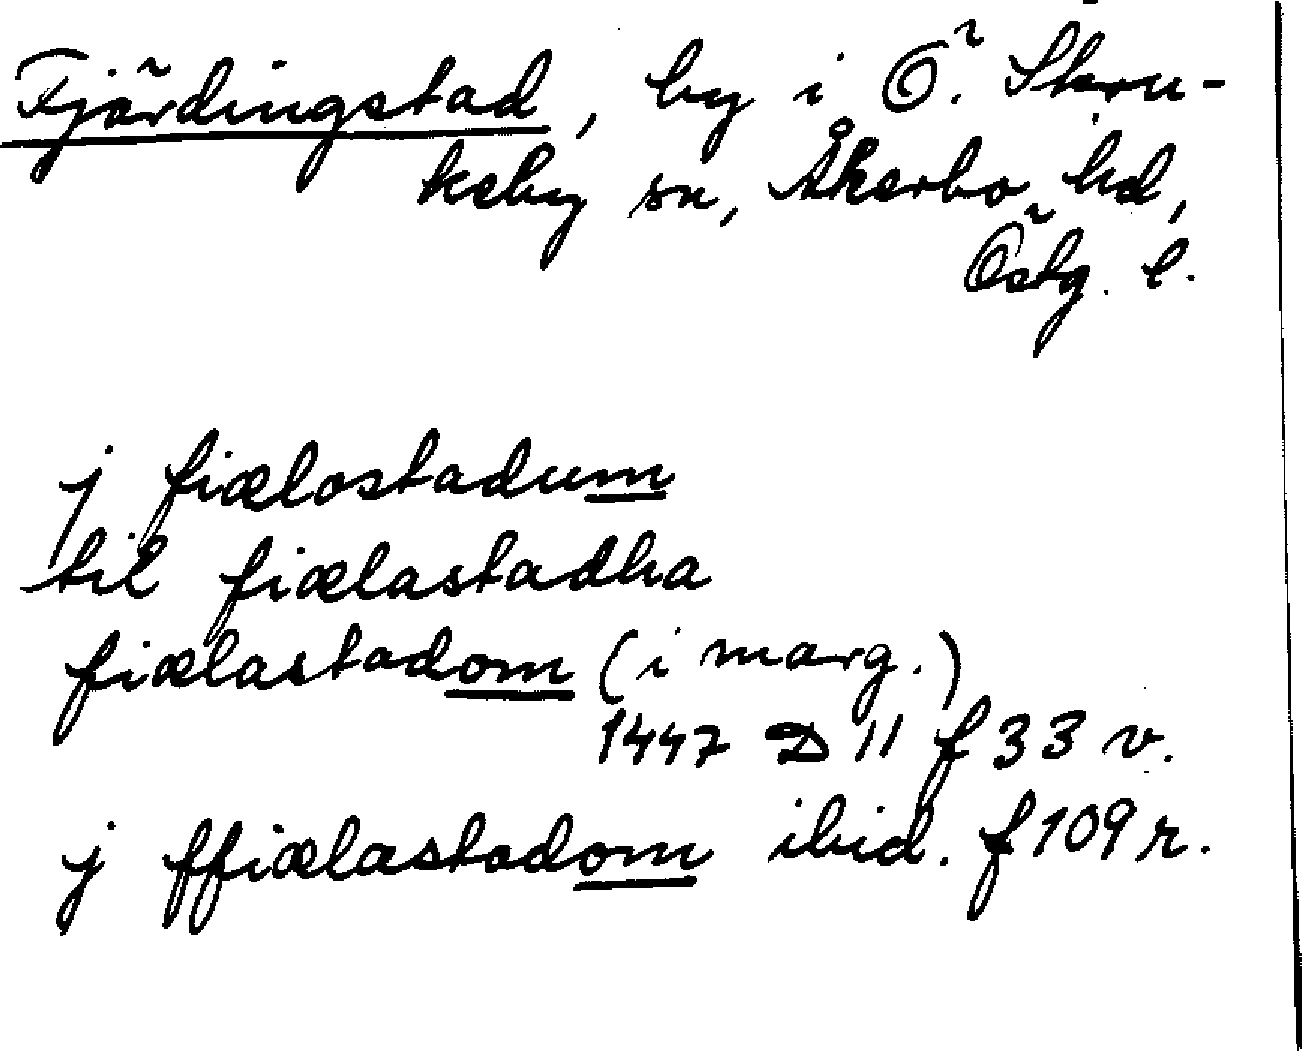 Fjärdingstad, by i Ö. Skru-
keby sn, Åkerbo hd,
Östg. l.
j fiælostadum
til fiælastadha
fiælastadom (i marg.)
1447 D 11 f 33 v.
j ffiælastadom ibid. f 109 r.